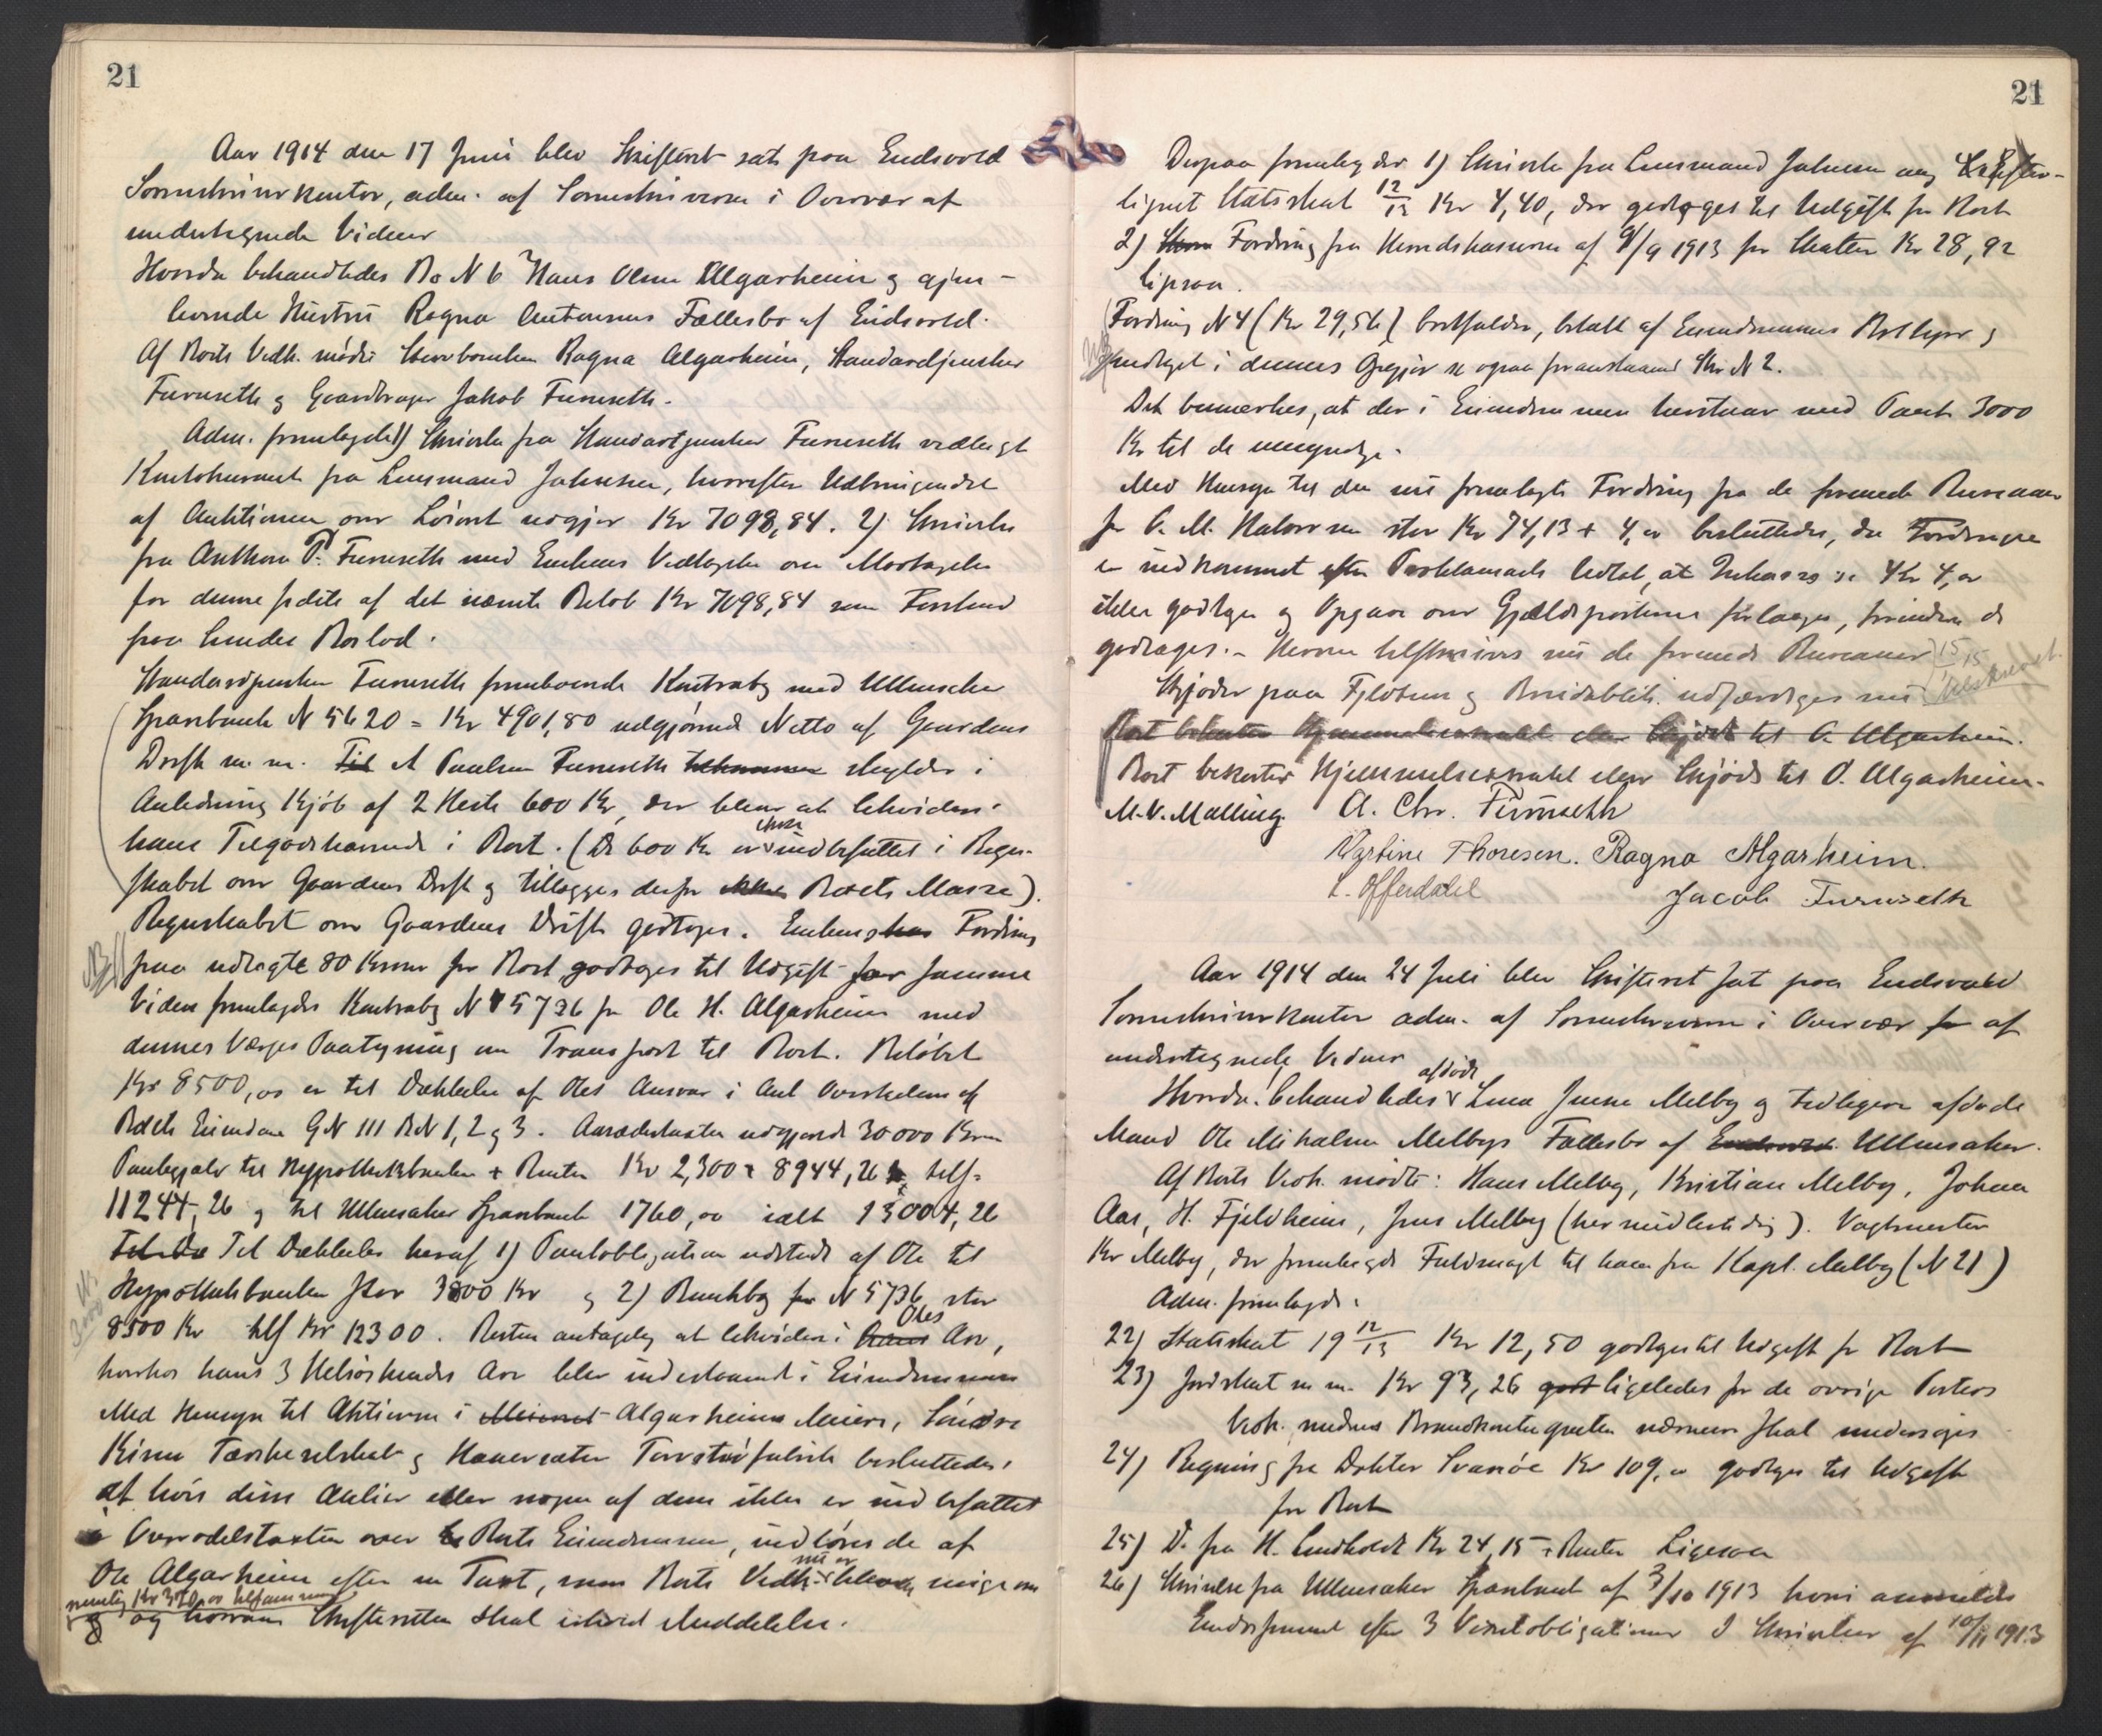 21
Aar 1914 den 17 Juni blev Skifteret sat paa Eidsvold
Sorenskriverkontor, adm. af Sorenskriveren i Overvær af
undertegnede Vidner
Hvorda behandledes Bo N 6 Hans Olsen Algarheim og gjen-
levende Hustru Ragna Antonsens Fællesbo af Eidsvold.
Af Boets Vedk. mødte Stervboenken Ragna Algarheim, Standardjunker
Furuseth og Gaardbruger Jakob Furuseth.
Adm. fremlagde 1) Skrivelse fra Standartjunker Furuseth vedlagt
Kontokurant fra Lensmand Johnsen, hvorefter Udbringendet
af Auktionen over Løsøret udgjør Kr 7098,84. 2) Skrivelse
fra Anthon P. Furuseth med Enkens Vedtagelse om Modtagelse
for dennes så dets af det nævnte Beløb Kr 7098,84 som Forskud
paa hendes Boslod.
Standardjunker Furuseth fremlagde Kontrabog med Ullensaker
Sparebank N 5620 = Kr 4901,80 udgjørende Netto af Gaardens
Drift m. m. Til A Paulsen Furuseth tilkommer skyldes i
Anledning Kjøb af 2 Heste 600 Kr, der bliver at likvidere i
hans Tilgodehavende i Boet. (De 600 Kr er ikke indbefattet i Regn-
skabet over Gaardens Drift og tillægges derfor ikke Boets Masse).
Regnskabet over Gaardens Drift godtages. Enkens has Fordring
paa udlagte 80 Kroner for Boet godtages til Udgift for samme
Viden fremlagdes Kontrabog N 5736 for Ole H. Algarheim med
dennes Værges Paategning om Transport til Boet. Beløbet
Kr 8500,00 er til Dækkelse af Oles Ansvar i Anl Overtakelsen af
Boets Eiendom GN 111 BN 1, 2 og 3. Aasædestaxten udgjorde 30000 Kroner
Pantegjæld til Hypothekbanken + Renter Kr 2,300 + 8944,26 tils.
11244,26 og til Ullensaker Sparebank 1760,00 ialt 13004,26
Til Da Til Dækkelse heraf 1) Pantobligation udstedt af Ole til
Hypothekbanken stor 3800 Kr og 2) Bankbog for N 5736 stor
8500 Kr tils Kr 12300. Resten antagelig at likvidere i hans Oles Arv,
hvorhos hans 3 Helsøskendes Arv blev indestaaende i Eiendommen
Med Hensyn til Aktierne i Meieriet Algarheims Meieri, Søndre
Kisen Tærskeselskab og Hauersæter Torvstrøfabrik besluttedes,
at hvis disse Aktier eller nogen af dem ikke er indbefattet
i Overodelstaxten over Boets Eiendommen, indløses de af
Ole Algarheim efter en Taxt, som Boets Vedk. nu er blevne enige om
nemlig Kr 370,00 tilsammen
og og hvorom Skifteretten skal ishvid Meddelelse.
21
Derpaa fremlagdes 1) Skrivelse fra Lensmand Johnsen ang Efter-
lignet Statsskat 12/13 Kr 4,40, der godtages til Udgift for Boet
2) Fordring fra Herredskassereren af 9/9 1913 for Skatter Kr 28,92
ligesaa.
Fordring N 4 (Kr 29,56) bortfalder, betalt af Eiendommens Bestyrer og
medtaget i dennes Opgjør se ogsaa foranstaaende Skr N 2.
Det bemerkes, at der i Eiendommen henstaar med Pant 3000
Kr til de umyndige.
Med Hensyn til den nu fremlagte Fordring fra de forenede Bureauer
for C. M. Halvorsen stor Kr 74,13 + 4,00 besluttedes, da Fordringen
er indkommet efter Proklamaets Udløb, at Inkasso Kr 4,00
ikke godtages og Opgave over Gjældsposterne forlanges, forinden de
godtages. - Herom tilskrives nu de forenede Bureauer 15/15
tilskrevet
Skjøder paa Fjeldtun og Breidablik udfærdiges nu
Boet bekoster Hjemmelserstatel eller Skjøde til O. Algarheim.
Boet bekoster Hjemmelsesmatel eller Skjøde til O. Algarheim.
M. V. Malling. A. Chr. Furuseth
Martine Thoresen. Ragna Algarheim.
L. Offerdahl Jacob Furuseth
Aar 1914 den 24 Juli blev Skifteret sat paa Eidsvold
Sorenskriverkontor adm. af Sorenskriveren i Overvær for af
undertegnede Vidner
Hvorda. behandledes afdøde Lina Jensen Melby og tidligere afdøde
Mand Ole Mikalsen Melbys Fællesbo af Eidsvold Ullensaker.
Af Boets Vedk. mødte: Hans Melby, Kristian Melby, Johan
Aas, H. Fjeldheim, Jens Melby (her midlertidig). Vagtmester
Kr Melby, der fremlagde Fuldmagt til ham fra Kapt. Melby (N 21)
Adm. fremlagde:
22) Statsskat 19 12/13 Kr 12,50 godtages til Udgift for Boet
23) Jordskat m m. Kr 93,26 godt ligeledes for de øvrige Posters
Vedk. medens Brandkontingenten nærmere skal undersøges
24) Regning fra Doktor Svanøe Kr 109,00 godtages til Udgift
for Boet
25) Do fra H. Lindholdt Kr 24,15 + Renter Ligesaa
26) Skrivelse fra Ullensaker Sparebank af 3/10 1913 hvori anmeldes
Endossement efter 3 Vexelobligationer og Skrivelser af 10/11 1913